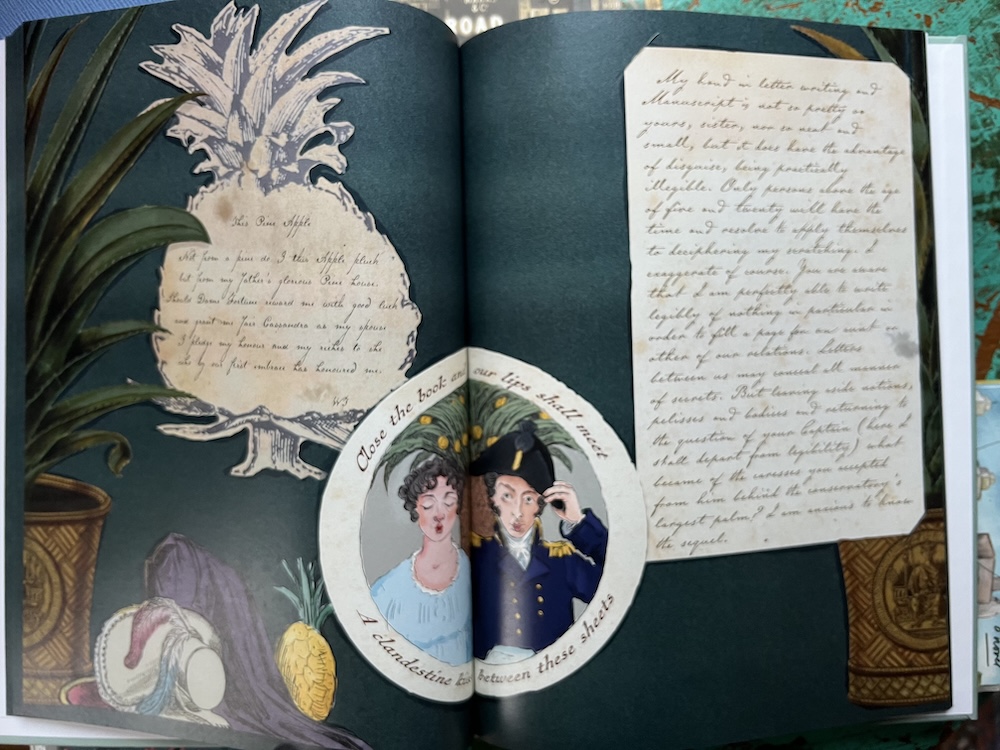 ROAD
This Pine Apple
Not from a pine do I this Apple pluck
but from my Father's glorious Pine House.
Should Dame Fortune reward me with good luck
and grant me Fair Cassandra as my spouse
I pledge my honour and my riches to she
who by our first embrace has honoured me.
W.J.
Close the book and our lips shall meet
A clandestine kiss between these sheets
My hand in letter writing and
Manuscript is not so pretty as
yours, sister, nor so neat and
small, but it does have the advantage
of disguise, being practically
illegible. Only persons above the age
of five and twenty will have the
time and resolve to apply themselves
to deciphering my scratching. I
exaggerate of course. You are aware
that I am perfectly able to write
legibly of nothing in particular in
order to fill a page for an aunt or
other of our relations. Letters
between us may conceal all manner
of secrets. But leaving aside notions,
pelisses and bodices and returning to
the question of your Captain (here I
shall depart from legibility) what
became of the caresses you accepted
from him behind the conservatory's
largest palm? I am anxious to know
the sequel.